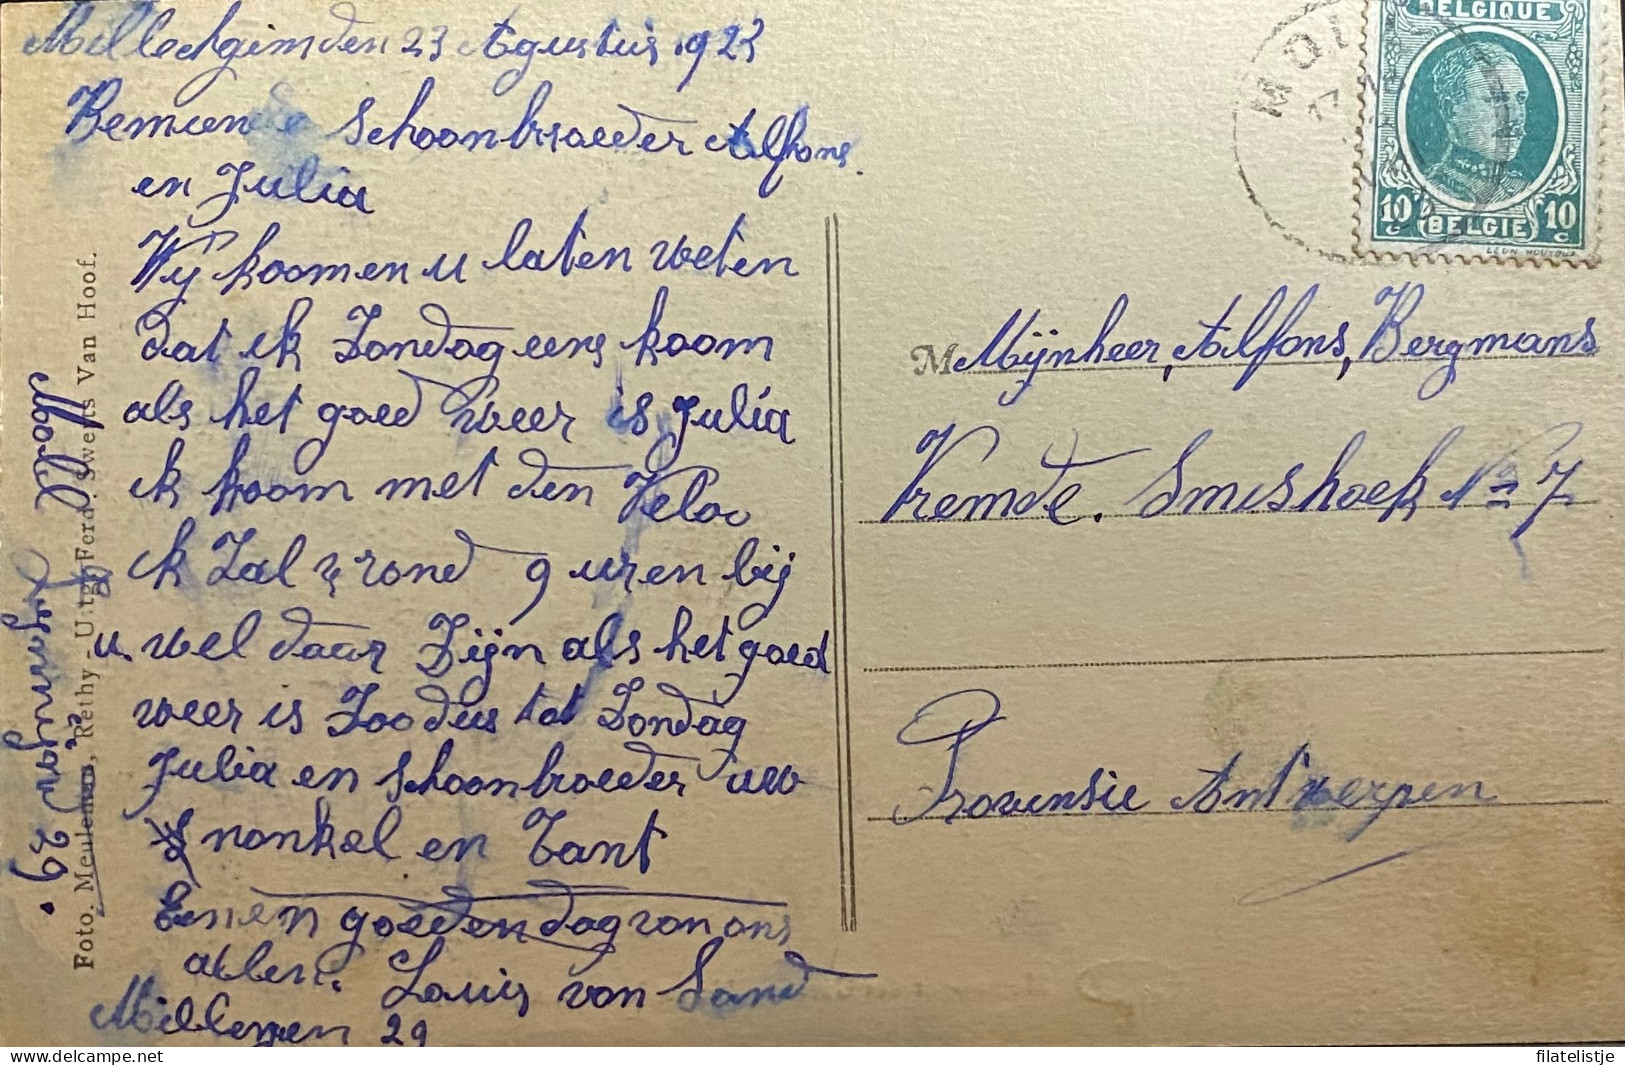 den 23 Agustus 1923
Beminde Schoonbroeder Alfons
en Julia
Wij koomen u laten weten
dat ik Zondag eens koom
als het goed weer is Julia
ik koom met den Veloo
ik Zal rond 9 uren bij
u. wel daar Zijn als het goed
weer is Zoo dus tot Zondag
Julia en schoonbroeder uw
nonkel en Tant
Eenen goedendag van ons
allen. Louis van Sand
Millegen 29
Moll
29.
Foto. Meulemans, Rethy - Uitg. Ferd. Swerts Van Hoof.
BELGIQUE
10 c BELGIE 10 c
LEON HOUYOUX
MOL
17
M Mijnheer, Alfons, Bergmans
Vremde. Smishoek No 7
Provensie Antwerpen
filatelistje